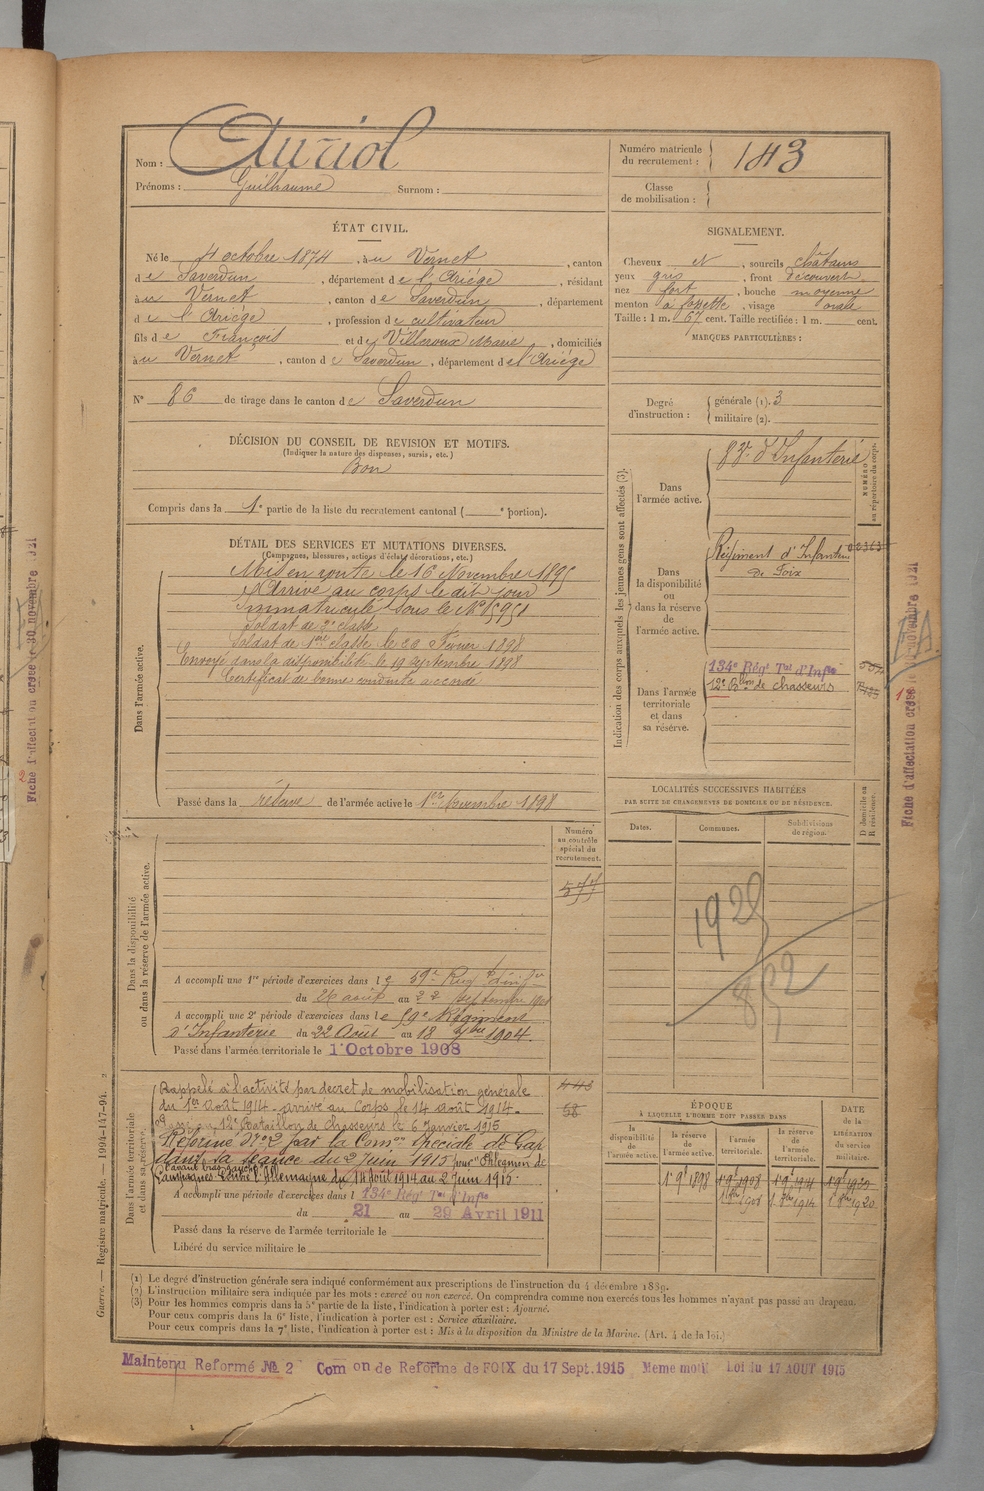 Nom : Auriol
Prénoms : Guilhaume Surnom :
Numéro matricule du recrutement : 143
Classe de mobilisation :
ÉTAT CIVIL.
Né le 4 octobre 1874, à au Vernet, canton
de Saverdun, département de l'Ariége, résidant
à au Vernet, canton de Saverdun, département
de l'Ariége, profession de cultivateur
fils de François et de Villeroux Marie, domiciliés
à au Vernet, canton de Saverdun, département de l'Ariége
N° 86 de tirage dans le canton de Saverdun
SIGNALEMENT.
Cheveux et, sourcils châtains
yeux gris, front découvert
nez fort, bouche moyenne
menton à fossette, visage ovale
Taille : 1 m. 67 cent. Taille rectifiée : 1 m. cent.
MARQUES PARTICULIÈRES :
Degré d'instruction : générale (1). 3
militaire (2).
DÉCISION DU CONSEIL DE REVISION ET MOTIFS.
(Indiquer la nature des dispenses, sursis, etc.)
Bon
Compris dans la 1e partie de la liste du recrutement cantonal ( e portion).
DÉTAIL DES SERVICES ET MUTATIONS DIVERSES.
(Campagnes, blessures, actions d'éclat, décorations, etc.)
Dans l'armée active.
Mis en route le 16 Novembre 1895
Arrivé au corps le dit jour
Immatriculé sous le N°
Soldat de 2e classe
Soldat de 1ère classe le Février 1898
Envoyé dans la disponibilité le 19 septembre 1898
Certificat de bonne conduite accordé
Passé dans la réserve de l'armée active le 1er Novembre 1898
Indication des corps auxquels les jeunes gens sont affectés (3).
NUMÉRO au répertoire du corps.
Dans l'armée active.
d'Infanterie
Dans la disponibilité ou dans la réserve de l'armée active.
Régiment d'Infanterie
de Foix
Dans l'armée territoriale et dans sa réserve.
134e Régt Tal d'Infie
12e Blon de chasseurs
LOCALITÉS SUCCESSIVES HABITÉES
PAR SUITE DE CHANGEMENTS DE DOMICILE OU DE RÉSIDENCE.
Dates. Communes. Subdivisions de région. D domicile ou R résidence.
1929
852
Numéro au contrôle spécial du recrutement.
Dans la disponibilité ou dans la réserve de l'armée active.
A accompli une 1re période d'exercices dans le 59e Rég
du 26 août au 22 septembre
A accompli une 2e période d'exercices dans le 59e Régiment
d'Infanterie du 22 Août au 18 7bre 1904.
Passé dans l'armée territoriale le 1 Octobre 1908
Dans l'armée territoriale et dans sa réserve
Rappelé à l'activité par décret de mobilisation générale
du 1er Août 1914 - arrivé au corps le 14 août 1914 -
12e Bataillon de Chasseurs le 6 Janvier 1915
Réformé N° 2 par la Comon Spéciale de Gap
dans sa séance du 2 Juin 1915 pour "Phlegmon de
l'avant bras gauche"
Campagnes Contre l'Allemagne du 14 août 1914 au 2 Juin 1915.
A accompli une période d'exercices dans l 134e Régt Tal d'Infie
du 21 au 29 Avril 1911
Passé dans la réserve de l'armée territoriale le
Libéré du service militaire le
58
ÉPOQUE
À LAQUELLE L'HOMME DOIT PASSER DANS
DATE DE LA LIBÉRATION du service militaire.
la disponibilité de l'armée active. la réserve de l'armée active. l'armée territoriale. la réserve de l'armée territoriale.
1 9bre 1898 1 9bre 1908 1 9bre 1914 1 9bre 1920
1 8bre 1908 1 8bre 1914 1 8bre 1920
(1) Le degré d'instruction générale sera indiqué conformément aux prescriptions de l'instruction du 4 décembre 1889.
(2) L'instruction militaire sera indiquée par les mots : exercé ou non exercé. On comprendra comme non exercés tous les hommes n'ayant pas passé au drapeau.
(3) Pour les hommes compris dans la 5e partie de la liste, l'indication à porter est : Ajourné.
Pour ceux compris dans la 6e liste, l'indication à porter est : Service auxiliaire.
Pour ceux compris dans la 7e liste, l'indication à porter est : Mis à la disposition du Ministre de la Marine. (Art. 4 de la loi.)
Maintenu Reformé № 2 Com on de Reforme de FOIX du 17 Sept. 1915 Meme motif Loi du 17 AOUT 1915
Guerre. — Registre matricule. — 1994-147-94.
Fiche d'affectation créée le 30 novembre 1921
Fiche d'affectation créée le novembre 1921